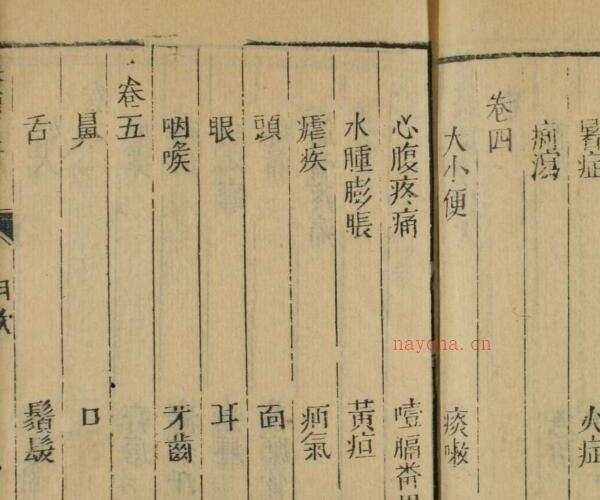 暑症 火症
痢瀉
卷四
大小便 痰嗽
心腹疼痛 噎膈
水腫膨脹 黃疸
瘧疾 疝氣
頭 面
眼 耳
咽喉 牙齒
卷五
鼻 口
舌 鬚髮
目
nayona.cn